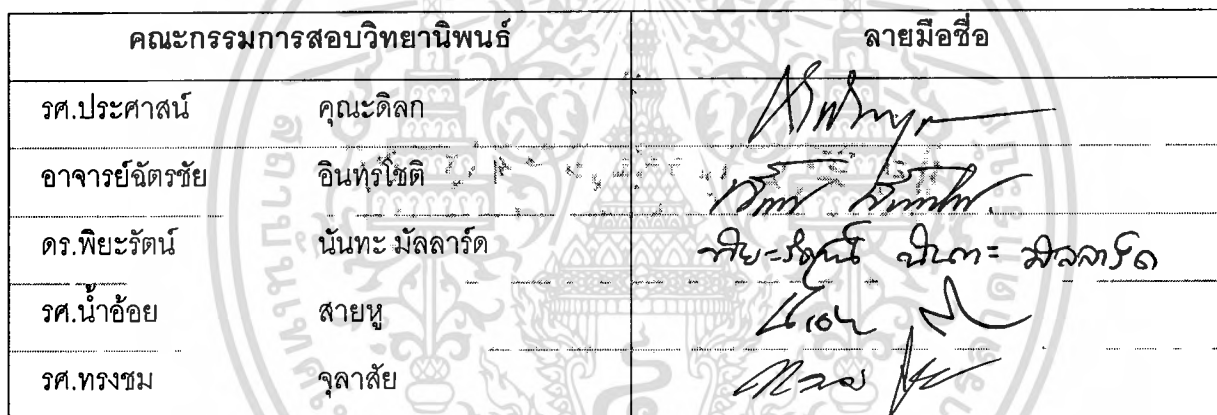 คณะกรรมการสอบวิทยานิพนธ์ ลายมือชื่อ
รศ.ประศาสน์ คุณะดิลก
อาจารย์ฉัตรชัย อินทรโชติ
ดร.พิยะรัตน์ นันทะ มัลลาร์ด พิยะรัตน์ นันทะ มัลลาร์ด
รศ.น้ำอ้อย สายหู
รศ.ทรงชม จุลาสัย